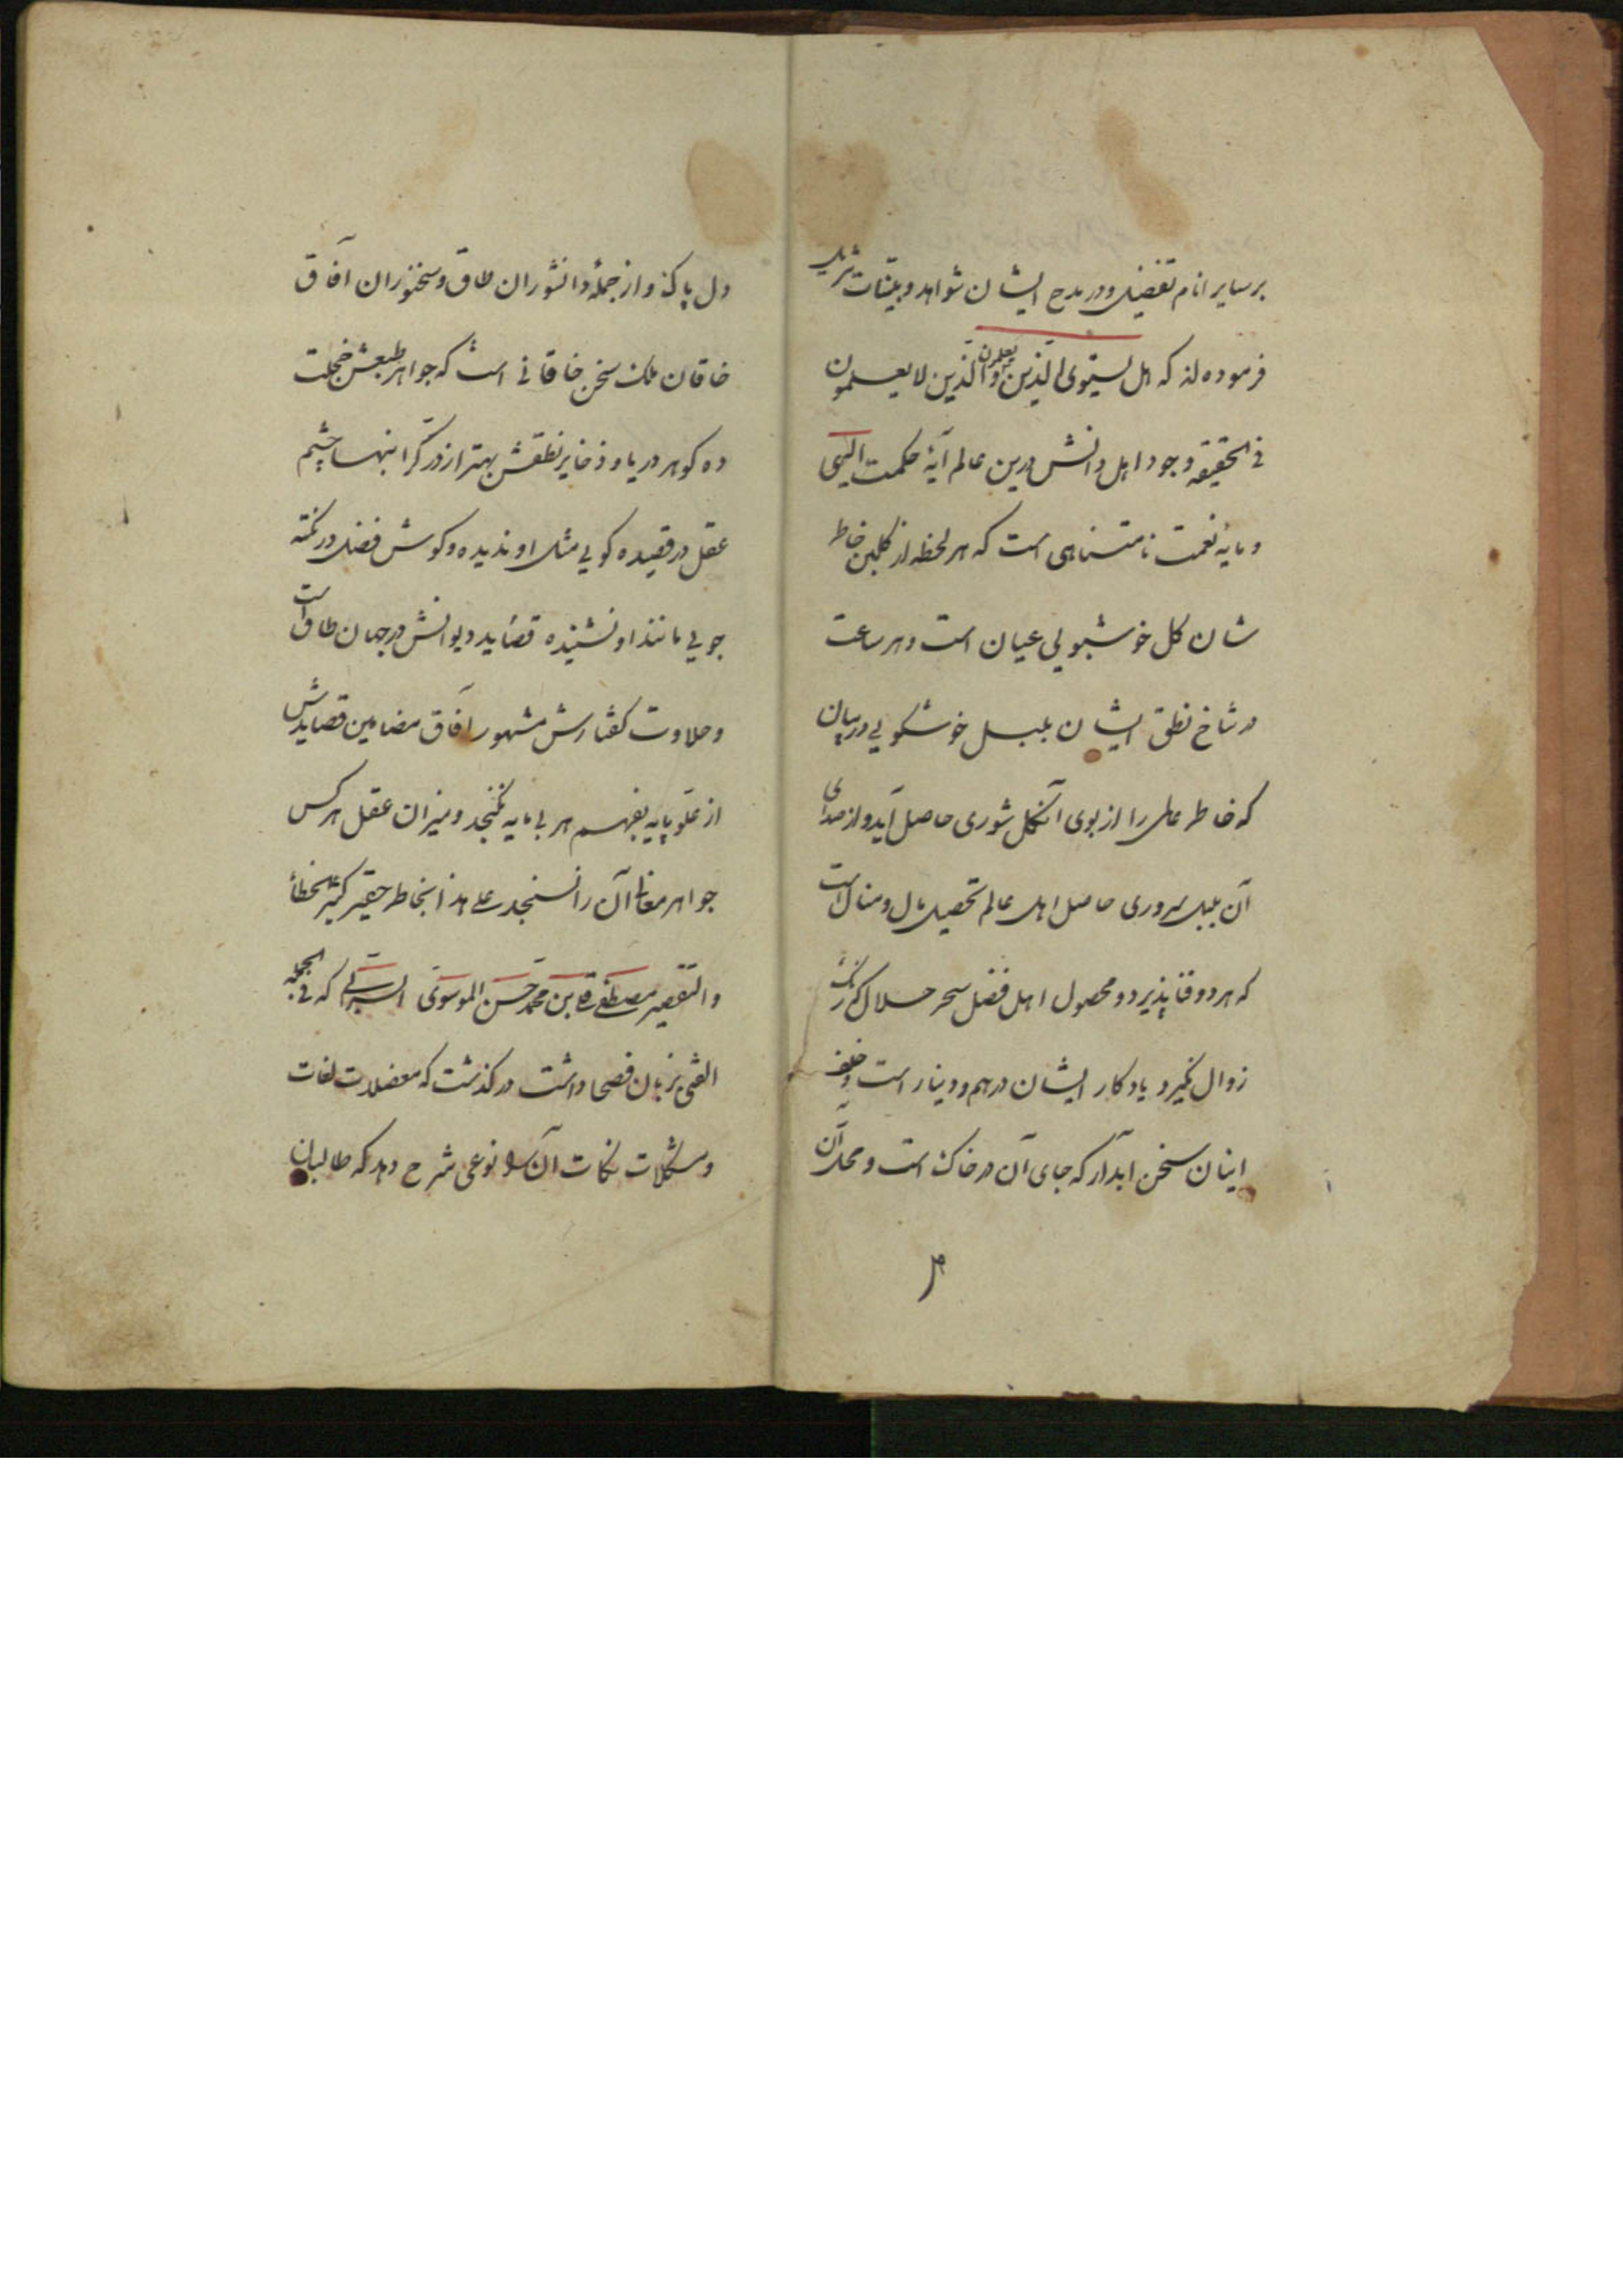 بر سایر انام تفضیل و در مدح ایشان شواهد و بینات تنزیل
فرموده اند که هل یستوی الذین یعلمون والذین لا یعلمون
فی الحقیقه وجود اهل دانش درین عالم آیهٔ حکمت الهی
و مایهٔ نعمت نامتناهی است که هر لحظه از کلبن خاطر
شان کل خوشبویی عیان است و هر ساعت
در شاخ نطق ایشان بلبل خوشکویی در بیان
که خاطر عالمی را از بوی آنکل شوری حاصل آید و از صدای
آن بلبل سروری حاصل اهل عالم تحصیل مال و منال است
که هر دو فنا پذیرد و محصول اهل فضل سحر حلال که
زوال نکیرد یادکار ایشان درهم و دینار است و خلف
اینان سخن آبدار که جای آن در خاک است و محل آن
دل پاک و از جملهٔ دانشوران طاق و سخنوران آفاق
خاقان ملک سخن خاقانی است که جواهر طبعش خجلت
ده کوهر دریا و ذخایر نطقش بهتر از در کرانبها چشم
عقل در قصیده کویی مثل او ندیده و کوش فضل در نکته
جویی مانند او نشنیده قصاید دیوانش در جهان طاق است
و حلاوت کفتارش مشهور آفاق مضامین قصایدش
از علو پایه بفهم هر بی مایه نکنجد و میزان عقل هر کس
جواهر معانی آن را نسنجد علی هذا بخاطر حقیر کثیر الخطأ
والتقصیر مصطفی قلی بن محمد حسن الموسوی که فی الجمله
الفتی بزبان فصحا داشت درکذشت که معضلات لغات
و مشکلات نکات آن را نوعی شرح دهد که طالبان